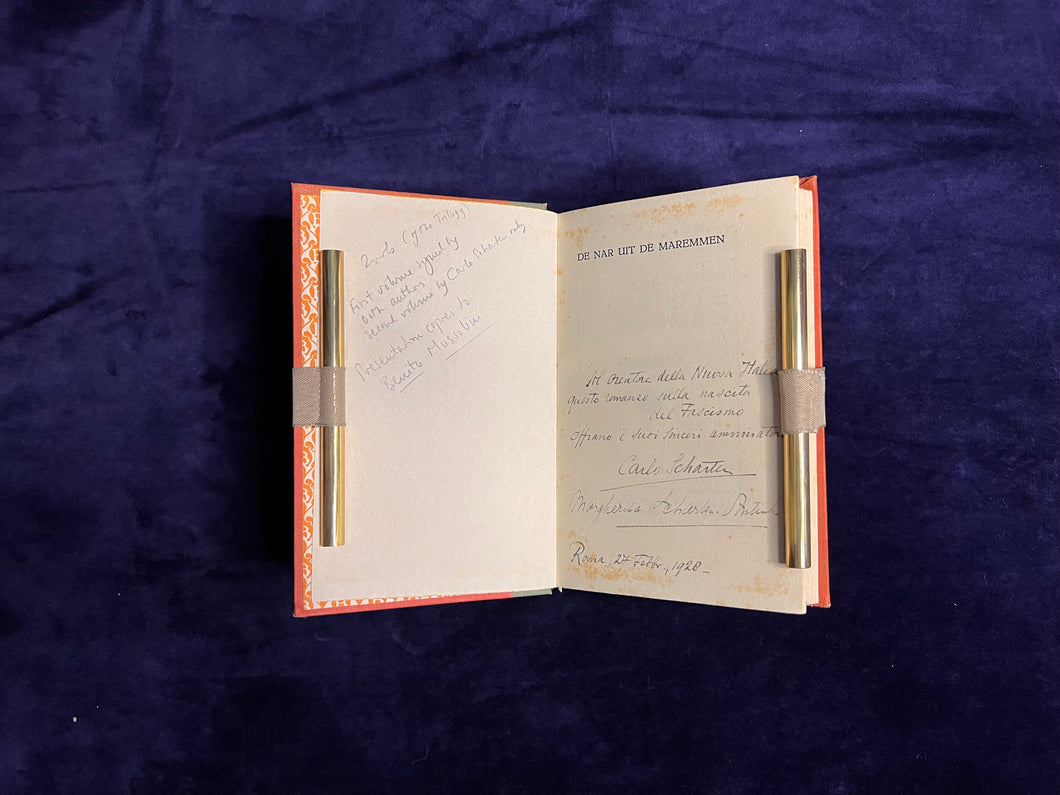 2 vols (of the Trilogy)
First volume signed by
both authors
second volume by Carlo Scharten only
Presentation copies to
Benito Mussolini
DE NAR UIT DE MAREMMEN
Al Creatore della Nuova Italia
questo romanzo sulla nascita
del Fascismo
offrano i suoi sinceri ammirator
Carlo Scharten
Margherita Scharten-Antink
Roma, 27 Febbr., 1928_